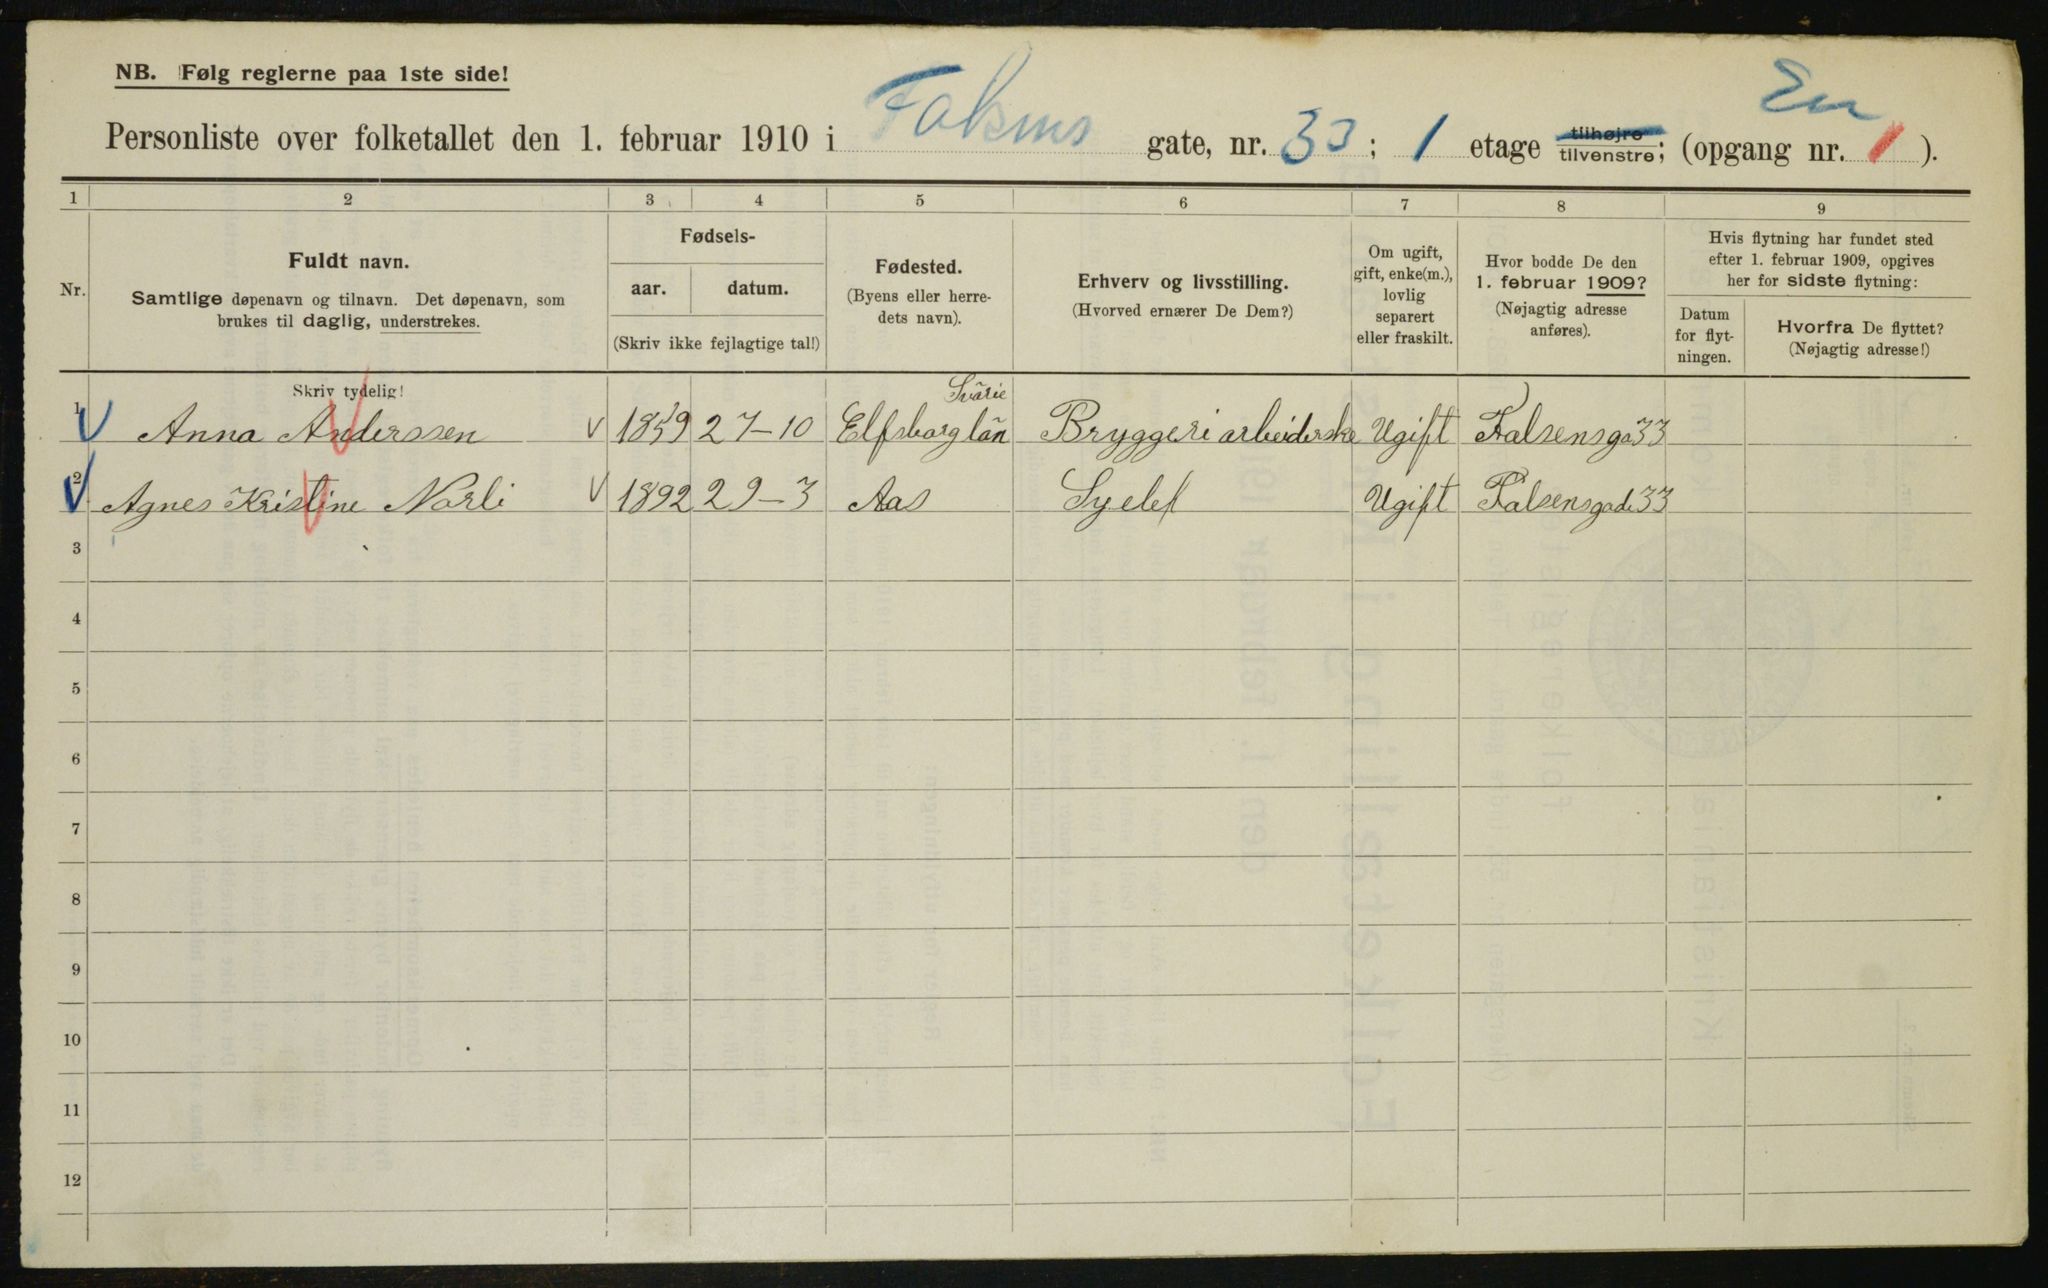 NB. Følg reglerne paa 1ste side!
En
Personliste over folketallet den 1. februar 1910 i Falsens gate, nr. 33; 1 etage tilhøjre tilvenstre; (opgang nr. 1 ).
1 2 3 4 5 6 7 8 9
Nr.
Fuldt navn.
Samtlige døpenavn og tilnavn. Det døpenavn, som
brukes til daglig, understrekes.
Fødsels-
aar. datum.
(Skriv ikke fejlagtige tal!)
Fødested.
(Byens eller herre-
dets navn).
Erhverv og livsstilling.
(Hvorved ernærer De Dem?)
Om ugift,
gift, enke(m.),
lovlig
separert
eller fraskilt.
Hvor bodde De den
1. februar 1909?
(Nøjagtig adresse
anføres).
Hvis flytning har fundet sted
efter 1. februar 1909, opgives
her for sidste flytning:
Datum
for flyt-
ningen.
Hvorfra De flyttet?
(Nøjagtig adresse!)
Skriv tydelig!
1 Anna Anderssen 1859 27-10 Elfsborg län Bryggeriarbeiderske Ugift Falsensga 33
2 Agnes Kristine Norli 1892 29-3 Aas Syelef Ugift Falsensgade 33
3
4
5
6
7
8
9
10
11
12